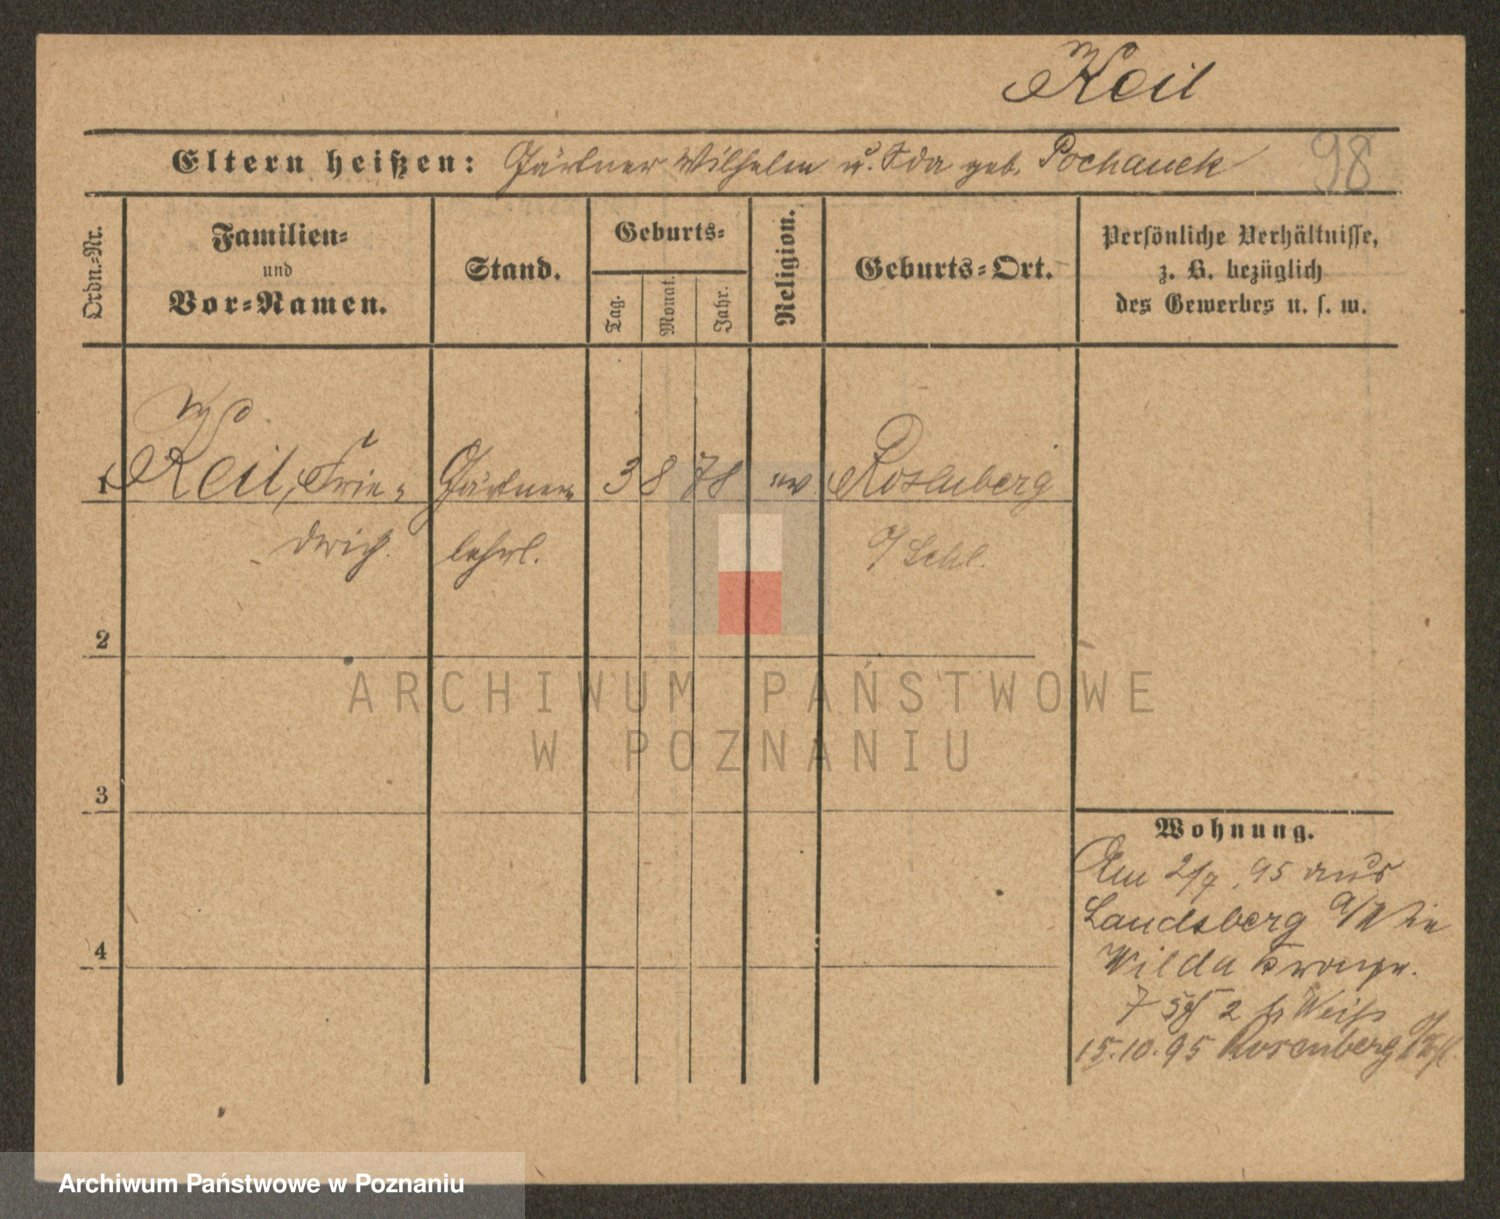 Keil
Eltern heißen: Gärtner Wilhelm u. Ida geb. Pochanek
98
Ordn.-Nr.
Familien-
und
Vor-Namen.
Stand.
Geburts-
Tag.
Monat.
Jahr.
Religion.
Geburts-Ort.
Persönliche Verhältnisse,
z. B. bezüglich
des Gewerbes u. s. w.
1 Keil, Frie- Gärtner 3 8 78 ev Rosenberg
drich. lehrl. O/Schl.
2
3
4
Wohnung.
Am 2/7. 95 aus
Landsberg a/W in
Wilda
7 2 Weiss
15.10.95 Rosenberg
ARCHIWUM PAŃSTWOWE
W POZNANIU
Archiwum Państwowe w Poznaniu